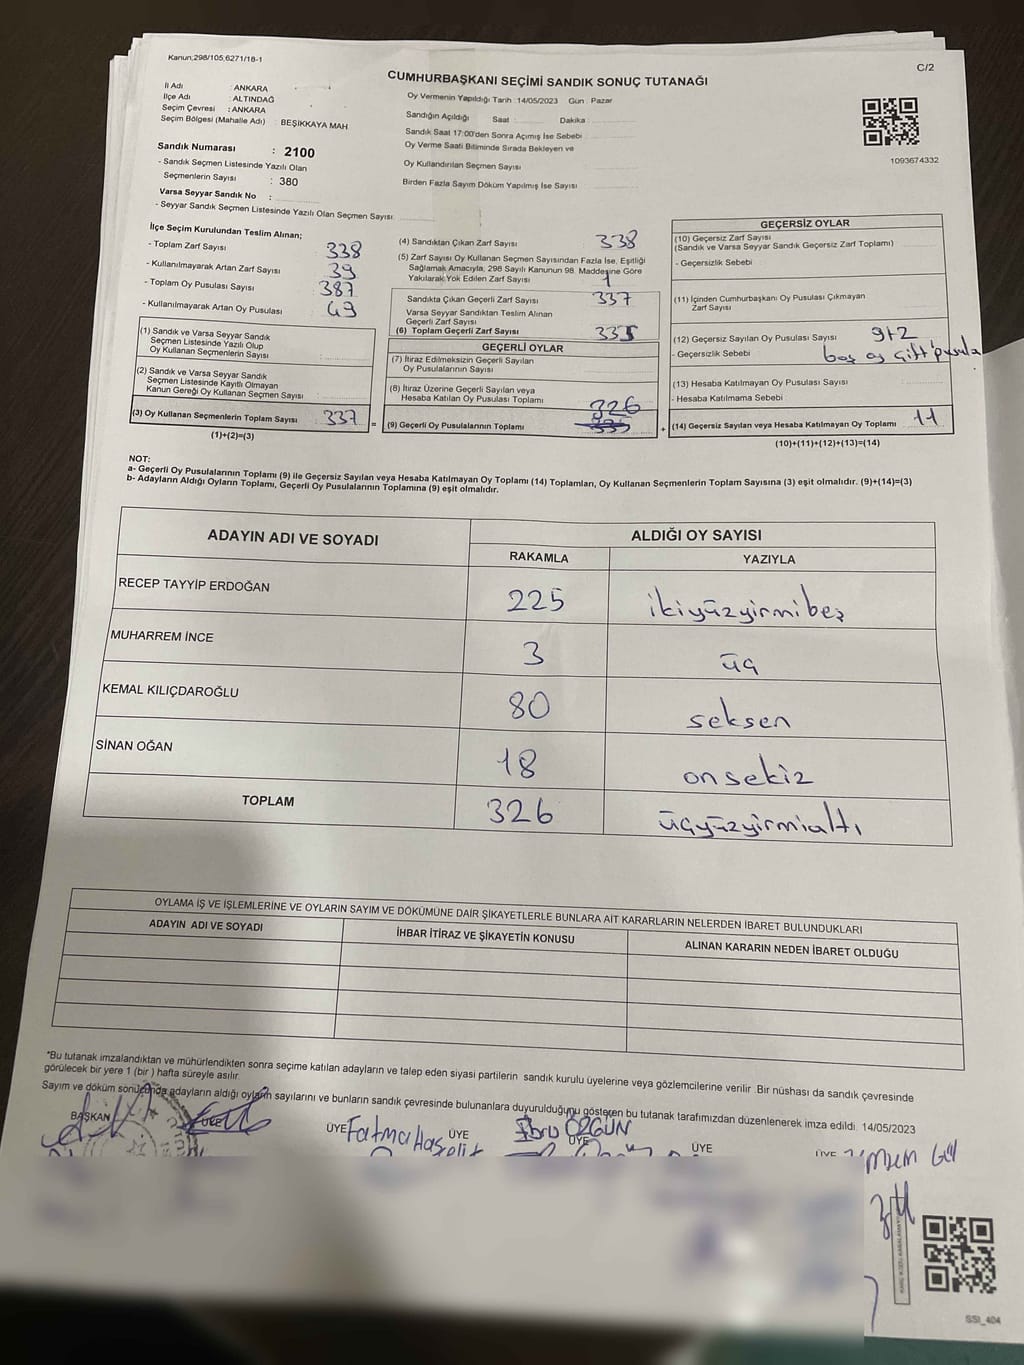 Kanun;298/105;6271/18-1
C/2
CUMHURBAŞKANI SEÇİMİ SANDIK SONUÇ TUTANAĞI
İl Adı : ANKARA
İlçe Adı : ALTINDAĞ
Seçim Çevresi : ANKARA
Seçim Bölgesi (Mahalle Adı) : BEŞİKKAYA MAH
Sandık Numarası : 2100
- Sandık Seçmen Listesinde Yazılı Olan
Seçmenlerin Sayısı : 380
Varsa Seyyar Sandık No :
- Seyyar Sandık Seçmen Listesinde Yazılı Olan Seçmen Sayısı
Oy Vermenin Yapıldığı Tarih : 14/05/2023 Gün : Pazar
Sandığın Açıldığı Saat : Dakika :
Sandık Saat 17:00'den Sonra Açımış İse Sebebi
Oy Verme Saati Bitiminde Sırada Bekleyen ve
Oy Kullandırılan Seçmen Sayısı
Birden Fazla Sayım Döküm Yapılmış İse Sayısı
1093674332
İlçe Seçim Kurulundan Teslim Alınan;
- Toplam Zarf Sayısı 338
- Kullanılmayarak Artan Zarf Sayısı 39
- Toplam Oy Pusulası Sayısı 387
- Kullanılmayarak Artan Oy Pusulası 49
(1) Sandık ve Varsa Seyyar Sandık
Seçmen Listesinde Yazılı Olup
Oy Kullanan Seçmenlerin Sayısı
(2) Sandık ve Varsa Seyyar Sandık
Seçmen Listesinde Kayıtlı Olmayan
Kanun Gereği Oy Kullanan Seçmen Sayısı
(3) Oy Kullanan Seçmenlerin Toplam Sayısı 337 =
(1)+(2)=(3)
(4) Sandıktan Çıkan Zarf Sayısı 338
(5) Zarf Sayısı Oy Kullanan Seçmen Sayısından Fazla İse, Eşitliği
Sağlamak Amacıyla, 298 Sayılı Kanunun 98. Maddesine Göre
Yakılarak Yok Edilen Zarf Sayısı 1
Sandıkta Çıkan Geçerli Zarf Sayısı 337
Varsa Seyyar Sandıktan Teslim Alınan
Geçerli Zarf Sayısı
(6) Toplam Geçerli Zarf Sayısı 335
GEÇERLİ OYLAR
(7) İtiraz Edilmeksizin Geçerli Sayılan
Oy Pusulalarının Sayısı
(8) İtiraz Üzerine Geçerli Sayılan veya
Hesaba Katılan Oy Pusulası Toplamı 326
(9) Geçerli Oy Pusulalarının Toplamı 335 +
GEÇERSİZ OYLAR
(10) Geçersiz Zarf Sayısı
(Sandık ve Varsa Seyyar Sandık Geçersiz Zarf Toplamı)
- Geçersizlik Sebebi
(11) İçinden Cumhurbaşkanı Oy Pusulası Çıkmayan
Zarf Sayısı
(12) Geçersiz Sayılan Oy Pusulası Sayısı 9+2
- Geçersizlik Sebebi boş oy çift pusula
(13) Hesaba Katılmayan Oy Pusulası Sayısı
- Hesaba Katılmama Sebebi
(14) Geçersiz Sayılan veya Hesaba Katılmayan Oy Toplamı 11
(10)+(11)+(12)+(13)=(14)
NOT:
a- Geçerli Oy Pusulalarının Toplamı (9) ile Geçersiz Sayılan veya Hesaba Katılmayan Oy Toplamı (14) Toplamları, Oy Kullanan Seçmenlerin Toplam Sayısına (3) eşit olmalıdır. (9)+(14)=(3)
b- Adayların Aldığı Oyların Toplamı, Geçerli Oy Pusulalarının Toplamına (9) eşit olmalıdır.
ADAYIN ADI VE SOYADI
ALDIĞI OY SAYISI
RAKAMLA YAZIYLA
RECEP TAYYİP ERDOĞAN 225 ikiyüzyirmibeş
MUHARREM İNCE 3 üç
KEMAL KILIÇDAROĞLU 80 seksen
SİNAN OĞAN 18 onsekiz
TOPLAM 326 üçyüzyirmialtı
OYLAMA İŞ VE İŞLEMLERİNE VE OYLARIN SAYIM VE DÖKÜMÜNE DAİR ŞİKAYETLERLE BUNLARA AİT KARARLARIN NELERDEN İBARET BULUNDUKLARI
ADAYIN ADI VE SOYADI İHBAR İTİRAZ VE ŞİKAYETİN KONUSU ALINAN KARARIN NEDEN İBARET OLDUĞU
*Bu tutanak imzalandıktan ve mühürlendikten sonra seçime katılan adayların ve talep eden siyasi partilerin sandık kurulu üyelerine veya gözlemcilerine verilir .Bir nüshası da sandık çevresinde
görülecek bir yere 1 (bir ) hafta süreyle asılır.
Sayım ve döküm sonucunda adayların aldığı oyların sayılarını ve bunların sandık çevresinde bulunanlara duyurulduğunu gösteren bu tutanak tarafımızdan düzenlenerek imza edildi. 14/05/2023
BAŞKAN ÜYE ÜYE ÜYE ÜYE ÜYE ÜYE
Fatma Haselit Ebru ÖZGÜN
SSI_404